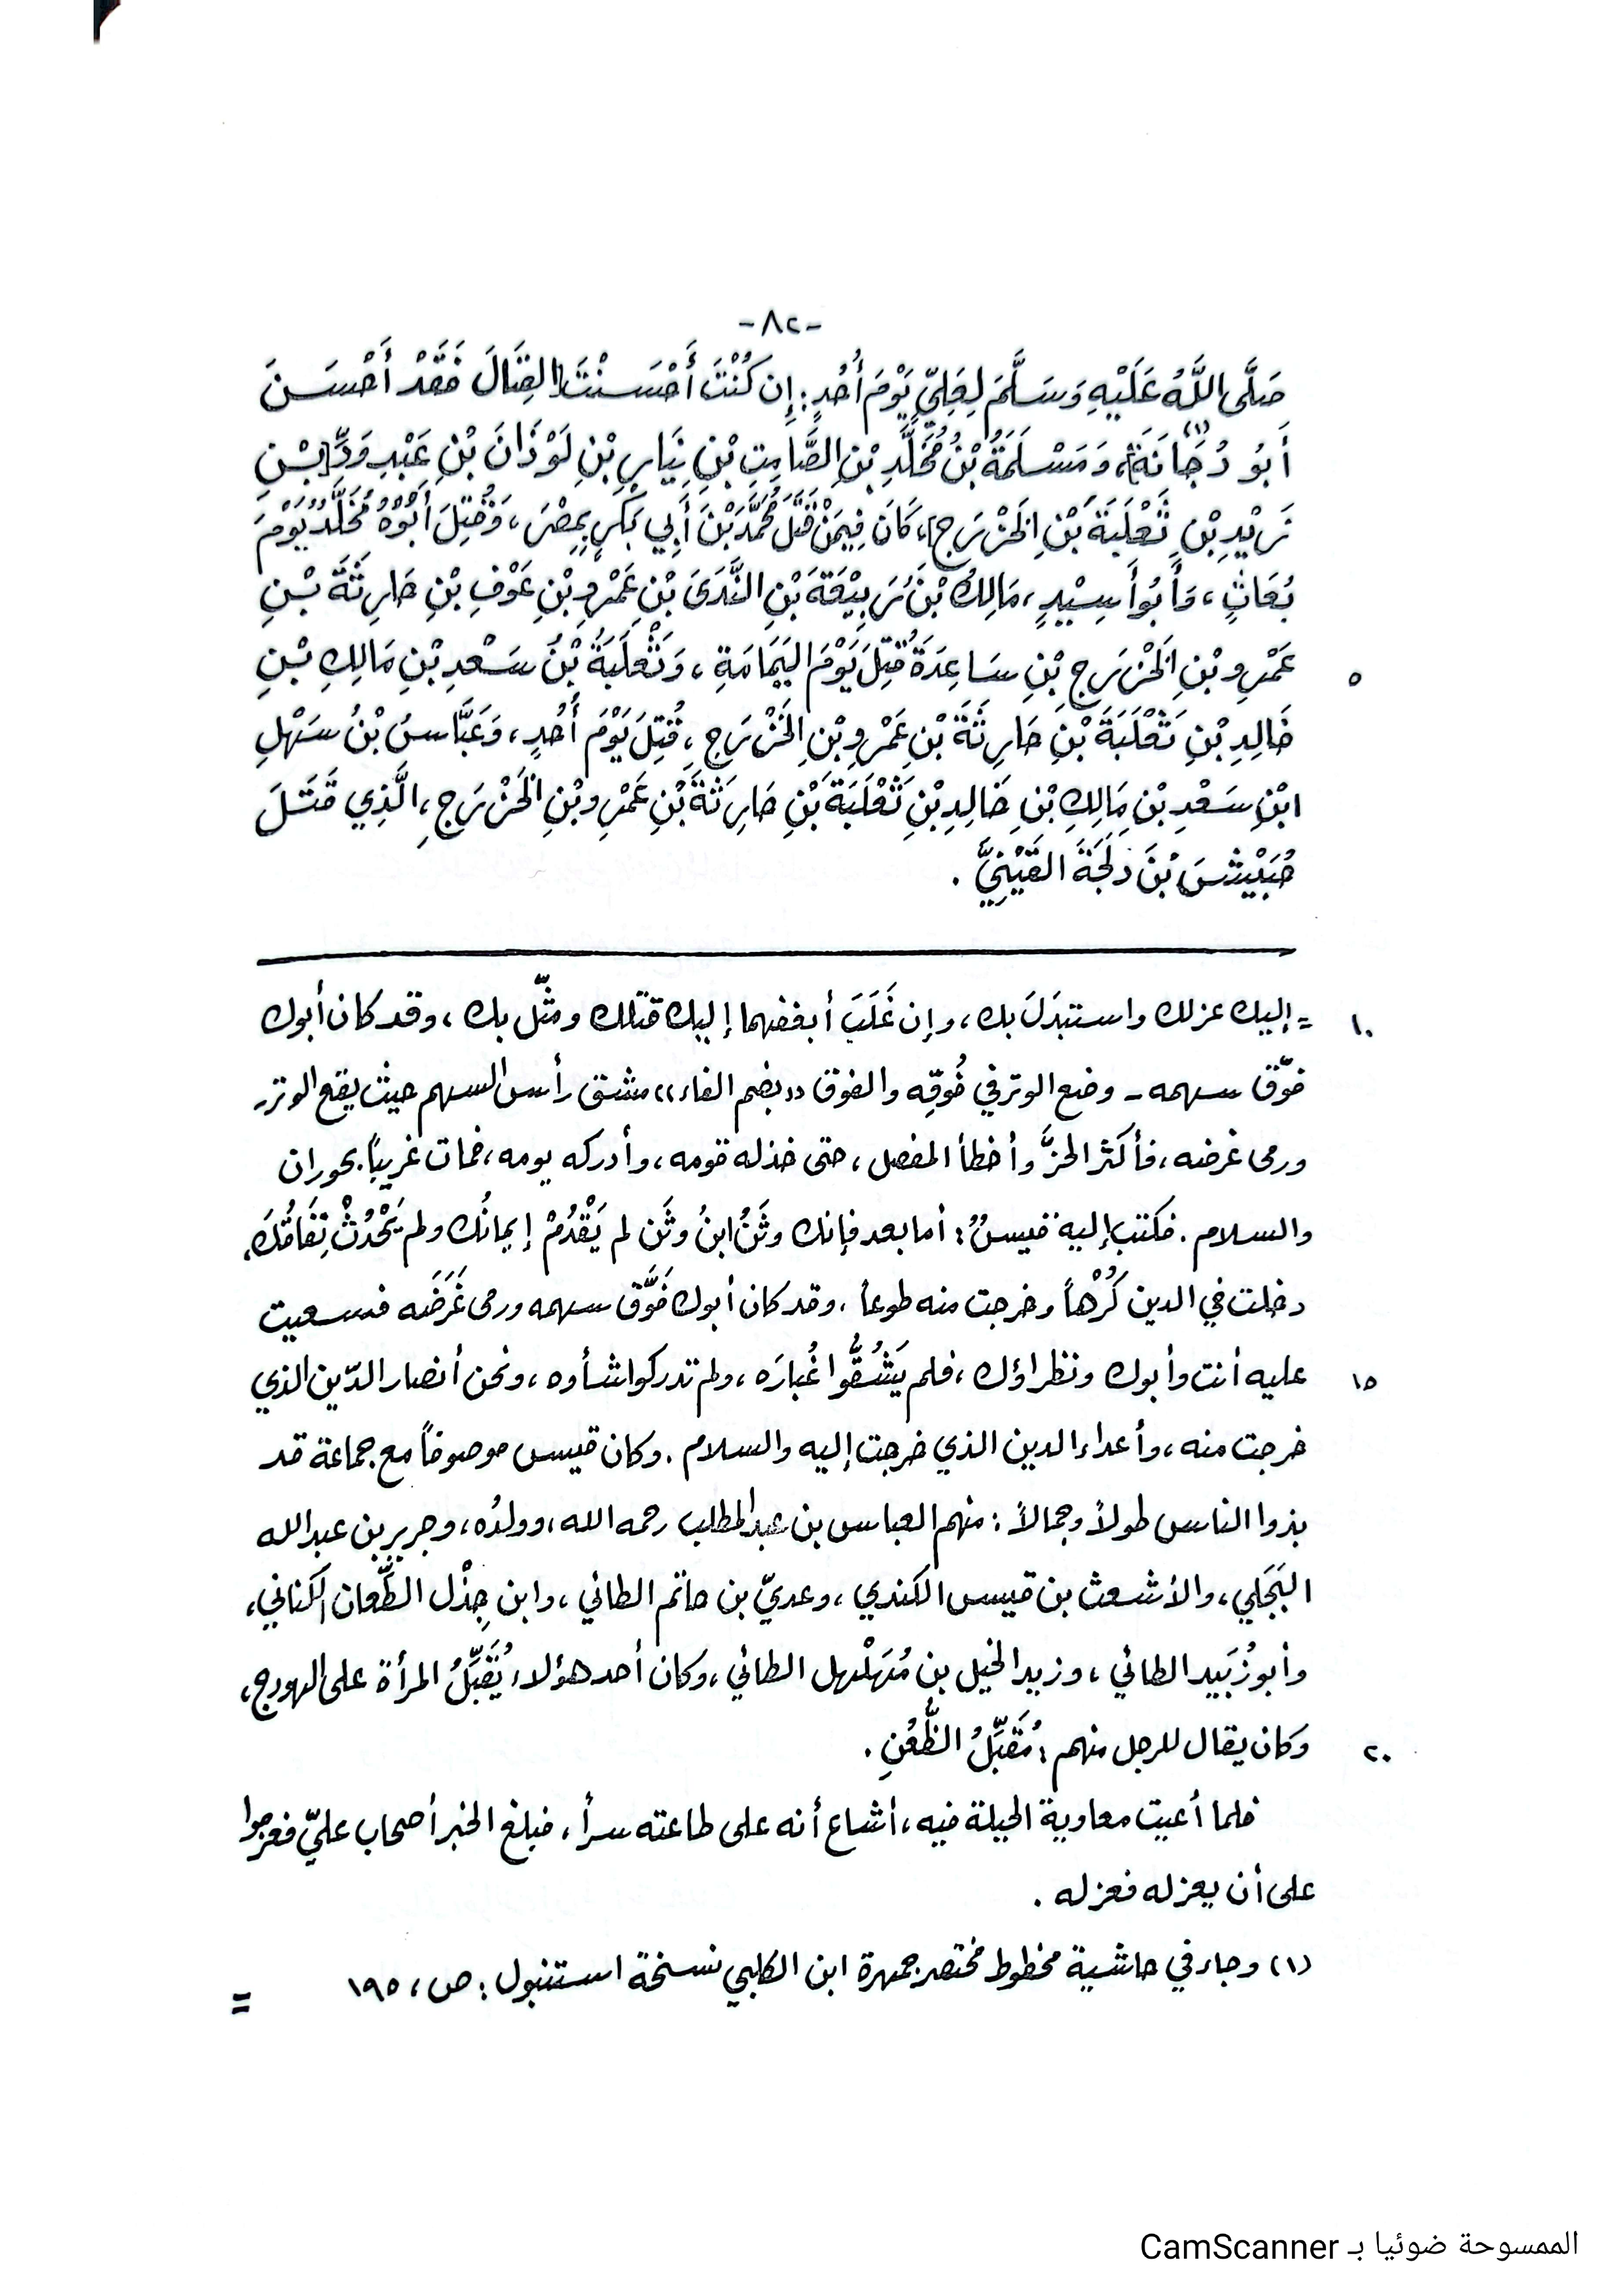 -٨٢-
صَلَّى اللَّهُ عَلَيْهِ وَسَلَّمَ لِعَلِيٍّ يَوْمَ أُحُدٍ: إِن كُنْتَ أَحْسَنْتَ القِتَالَ فَقَدْ أَحْسَنَ
أَبُو دُجَانَةَ(١)، وَمَسْلَمَةُ بْنُ مُخَلَّدِ بْنِ الصَّامِتِ بْنِ نِيَارِ بْنِ لَوْذَانَ بْنِ عَبْدِ وَدِّ [بْنِ
زَيْدِ بْنِ ثَعْلَبَةَ بْنِ الخَزْرَجِ]، كَانَ فِيمَنْ قَتَلَ مُحَمَّدَ بْنَ أَبِي بَكْرٍ بِمِصْرَ، وَقُتِلَ أَبُوْهُ مُخَلَّدٌ يَوْمَ
بُعَاثٍ، وَأَبُو أَسِيْدٍ، مَالِكُ بْنُ رَبِيْعَةَ بْنِ النَّدَى بْنِ عَمْرِو بْنِ عَوْفِ بْنِ حَارِثَةَ بْنِ
عَمْرِو بْنِ الخَزْرَجِ بْنِ سَاعِدَةَ قُتِلَ يَوْمَ اليَمَامَةِ، وَثَعْلَبَةُ بْنُ سَعْدِ بْنِ مَالِكِ بْنِ ٥
خَالِدِ بْنِ ثَعْلَبَةَ بْنِ حَارِثَةَ بْنِ عَمْرِو بْنِ الخَزْرَجِ، قُتِلَ يَوْمَ أُحُدٍ، وَعَبَّاسُ بْنُ سَهْلِ
ابْنِ سَعْدِ بْنِ مَالِكِ بْنِ خَالِدِ بْنِ ثَعْلَبَةَ بْنِ حَارِثَةَ بْنِ عَمْرِو بْنِ الخَزْرَجِ، الَّذِي قَتَلَ
حُبَيْشَ بْنَ دلَجَةَ القَيْنِيَّ.
= إليك عزلك واستبدَلَ بك، وإن غَلَبَ أبغضهما إليك قتلك ومثّل بك، وقد كان أبوك ١٠
فوّق سهمه - وضع الوتر في فُوقِه والفوق «بضم الفاء» مشق رأس السهم حيث يقع الوتر-
ورمى غرضه، فأكثر الحزَّ وأخطأ المفصل، حتى خذله قومه، وأدركه يومه، فمات غريباً بحوران
والسلام. فكتب إليه قيسٌ: أما بعد فإنك وثَنُ ابنُ وثَن لم يَقْدُمْ إيمانُك ولم يَحْدُثْ نِفَاقُكَ،
دخلت في الدين كُرْهاً وخرجت منه طوعاً، وقد كان أبوك فَوَّق سهمه ورمى غَرَضَه فسعيت
عليه أنت وأبوك ونظراؤك، فلم يَشُقُّوا غُبارَه، ولم تدركوا شأوه، ونحن أنصار الدّين الذي ١٥
خرجت منه، وأعداء الدين الذي خرجت إليه والسلام. وكان قيس موصوفاً مع جماعة قد
بذوا الناس طولاً وجمالاً: منهم العباس بن عبد المطلب رحمه الله، وولدُه، وجرير بن عبد الله
البَجَلي، والأشعث بن قيس الكندي، وعديّ بن حاتم الطائي، وابن جِذْل الطِّعان الكناني،
وأبو زُبَيد الطائي، وزيد الخيل بن مُهَلْهل الطائي، وكان أحد هؤلاء يُقَبِّلُ المرأة على الهودج،
وكان يقال للرجل منهم: مُقَبِّلُ الظُّعُنِ. ٢٠
فلما أعيت معاوية الحيلة فيه، أشاع أنه على طاعته سراً، فبلغ الخبر أصحاب عليّ فعزموا
على أن يعزله فعزله.
(١) وجاء في حاشية مخطوط مختصر جمهرة ابن الكلبي نسخة استنبول: ص، ١٩٥ =
الممسوحة ضوئيا بـ CamScanner